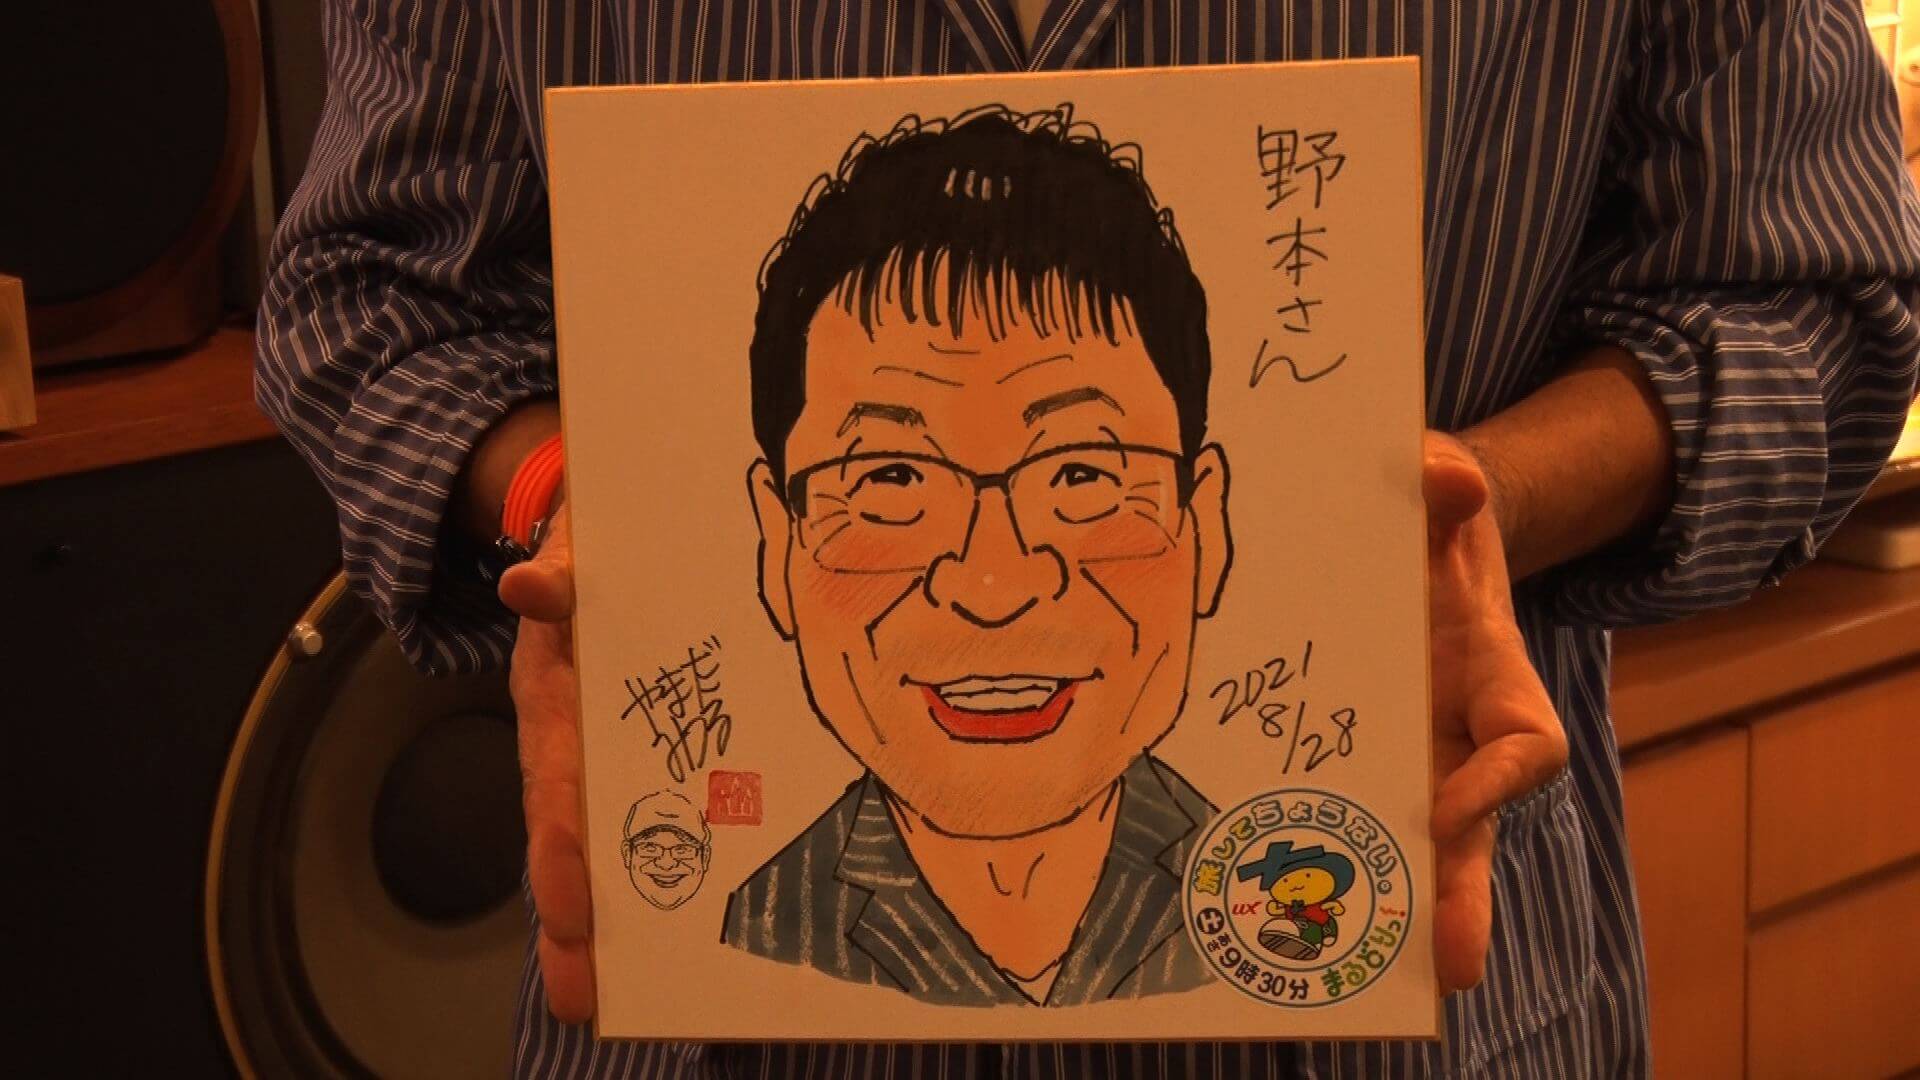 野本さん
2021
8/28
やまだ
みつる
旅してちょうない。
UX
土 あさ9時30分
まるどりっ!